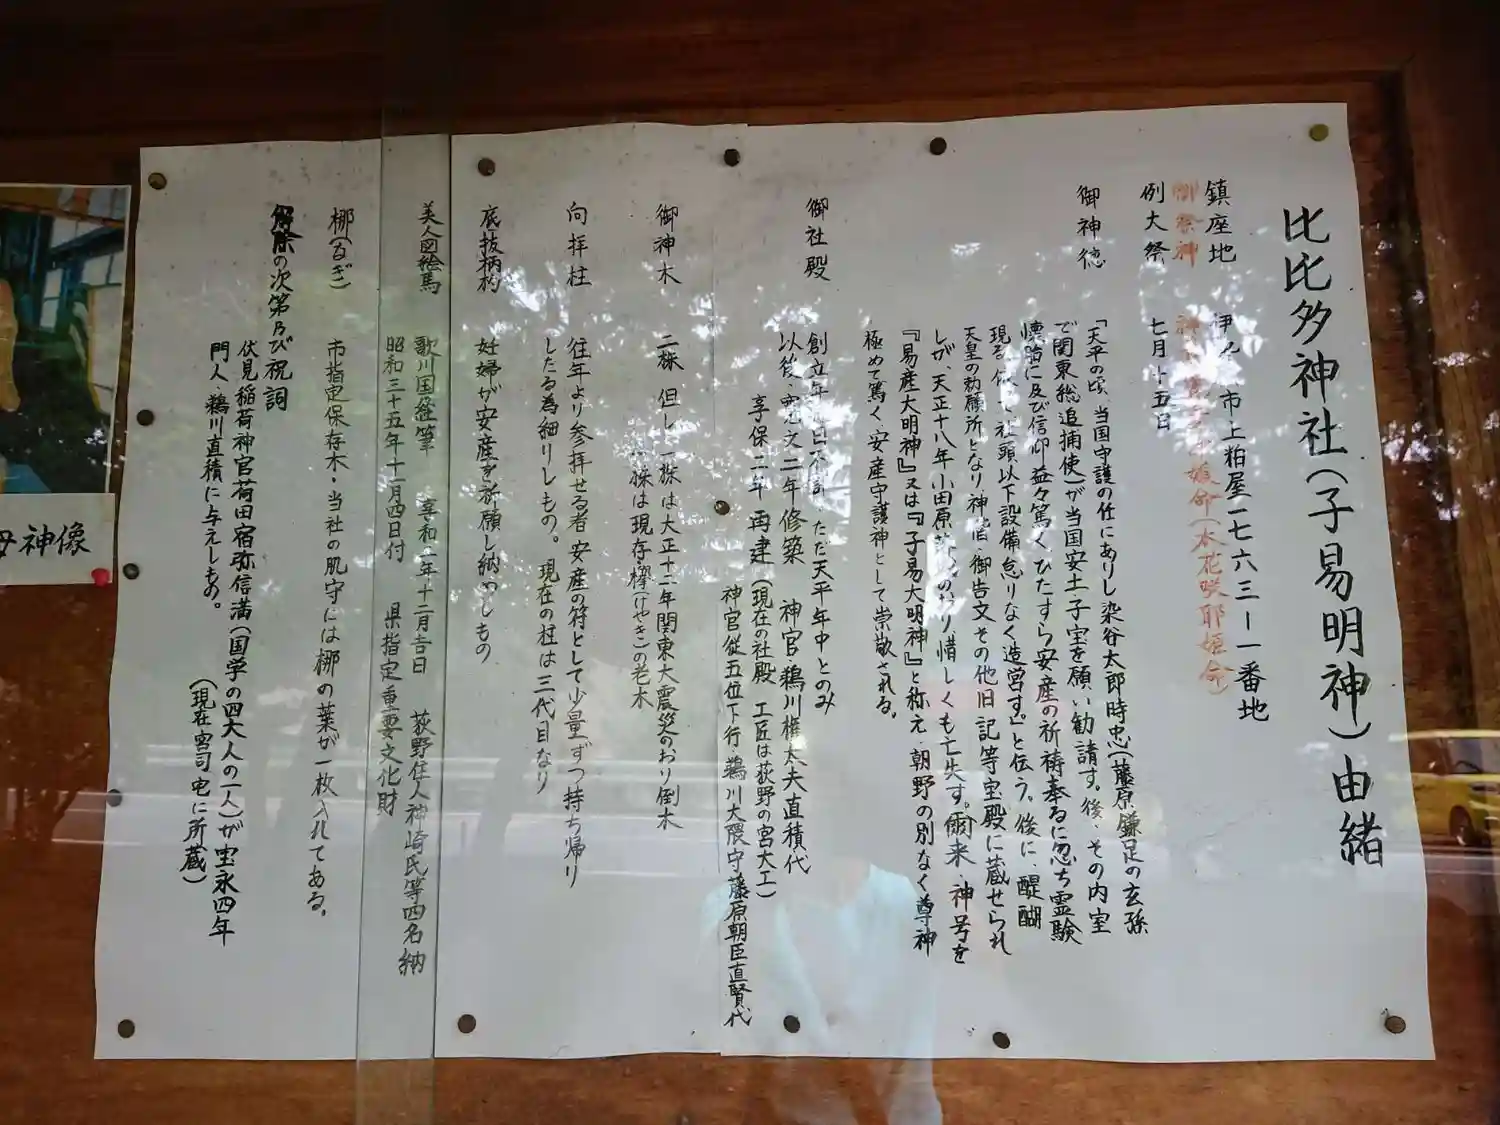 比比多神社(子易明神)由緒
鎮座地 伊 市上粕屋一七六三ー一番地
御祭神 神 姫命(木花咲耶姫命)
例大祭 七月十五日
御神徳 「天平の頃、当国守護の任にありし染谷太郎時忠(藤原鎌足の玄孫
で関東総追捕使)が当国安土子宝を願い勧請す。後、その内室
懐 に及び信仰益々篤く、ひたすら安産の祈祷奉るに忽ち霊験
現る。 て社頭以下設備怠りなく造営す。」と伝う。後に醍醐
天皇の勅願所となり神階・御告文その他旧記等宝殿に蔵せられ
しが、天正十八年小田原 の り惜しくも亡失す。爾来、神号を
『易産大明神』又は『子易大明神』と称え、朝野の別なく尊神
極めて篤く、安産守護神として崇敬される。
御社殿 創立年 日不詳、ただ天平年中とのみ
以後・寛文二年修築 神官鵜川権太夫直積代
享保二年再建(現在の社殿 工匠は荻野の宮大工)
神官従五位下行・鵜川大隈守藤原朝臣直賢代
御神木 二株 但し一株は大正十二年関東大震災のおり倒木
一株は現存・欅(けやき)の老木
向拝柱 往年より参拝せる者安産の符として少量ずつ持ち帰り
したる為細りしもの。現在の柱は三代目なり
底抜柄杓 妊婦が安産を祈願し納めしもの
美人図絵馬 歌川国経筆 享和一年十二月吉日 荻野住人神崎氏等四名納
昭和三十五年十一月四日付 県指定重要文化財
梛(なぎ) 市指定保存木・当社の肌守には梛の葉が一枚入れてある。
解除の次第及び祝詞
伏見稲荷神官荷田宿弥信満(国学の四大人の一人)が宝永四年
門人・鵜川直積に与えしもの。
(現在宮司宅に所蔵)
母神像